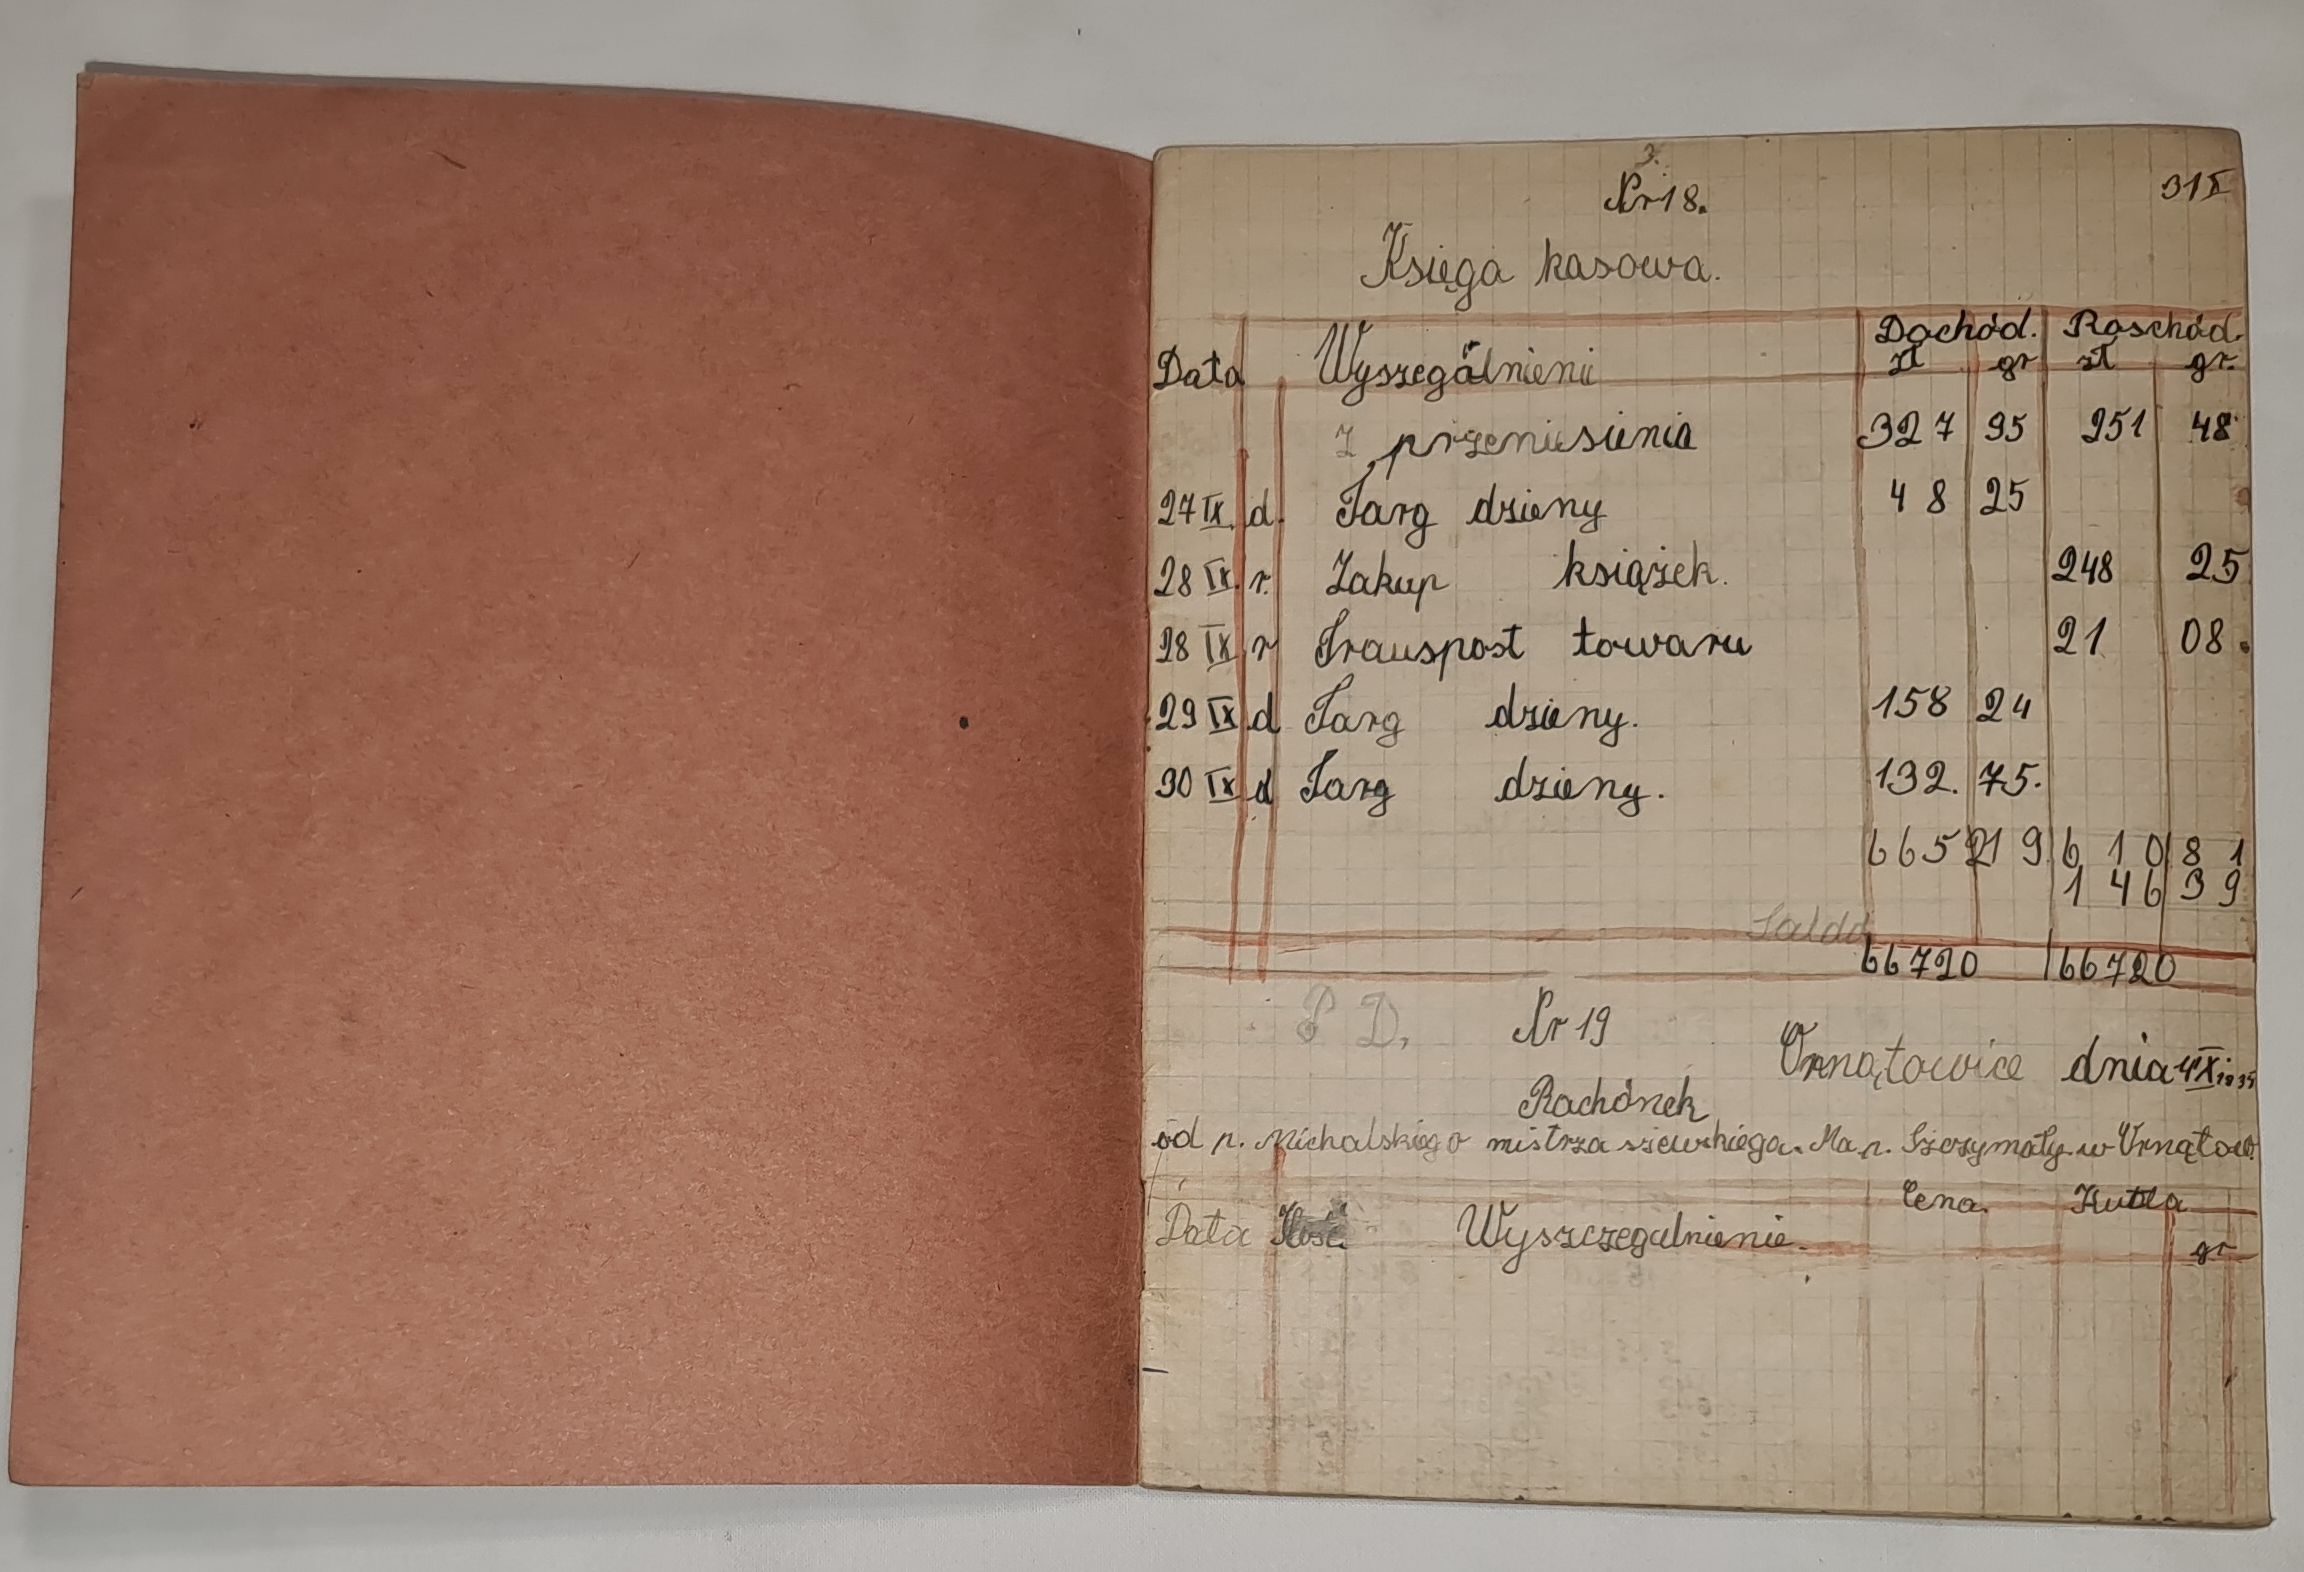 3.
Nr 18.
31 X
Księga kasowa.
Data Wyszególnieni Dochód. Roschód.
zł gr zł gr.
Z przeniesienia 327 95 251 48
27 IX. d. Targ dzieny 48 25
28 IX. r. Zakup książek. 248 25
28 IX r Transpost towaru 21 08.
29 IX d Targ dzieny. 158 24
30 IX d Targ dzieny. 132. 75.
665 219 610 81
146 39
Saldo
66720 66720
P D. Nr 19
Ornątowice dnia 4 X. 1935
Rachónek
od p. Michalskiego mistrza szewskiego. Ma p. Szczymały w Ornątow.
Data Ilość Wyszczegulnienie. Cena. Kwota
gr